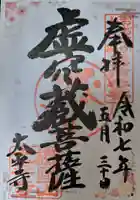 奉拝
令和七年
五月三十日
虚空蔵菩薩
太平寺